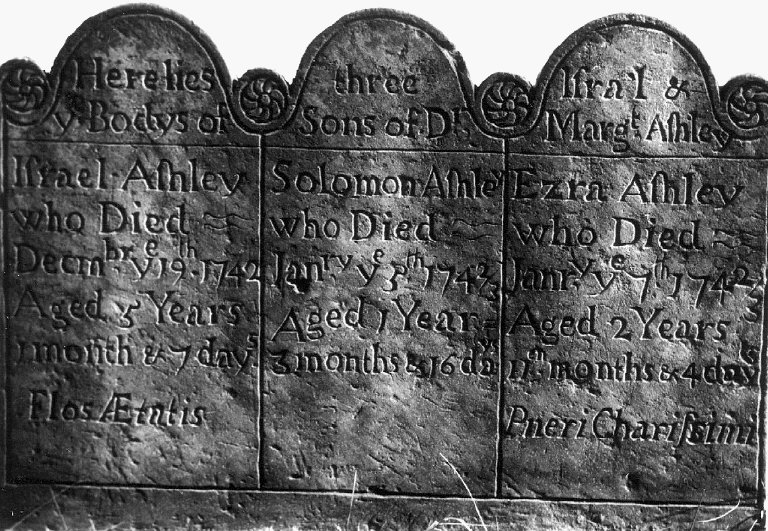 Here lies
yᵉ Bodys of
three
Sons of Dʳ
Iſral &
Margᵗ Aſhley
Iſrael Aſhley
who Died
Decmbʳ yᵉ 19ᵗʰ 1742
Aged 5 Years
1 month & 7 dayˢ
Flos Ætatis
Solomon Aſhley
who Died
Janʳʸ yᵉ 3ᵗʰ 174⅔
Aged 1 Year
3 months & 16 daʸ
Ezra Aſhley
who Died
Janrʸ yᵉ 7ᵗʰ 174⅔
Aged 2 Years
11ᵗʰ months & 4 dayˢ
Pueri Chariſsimi